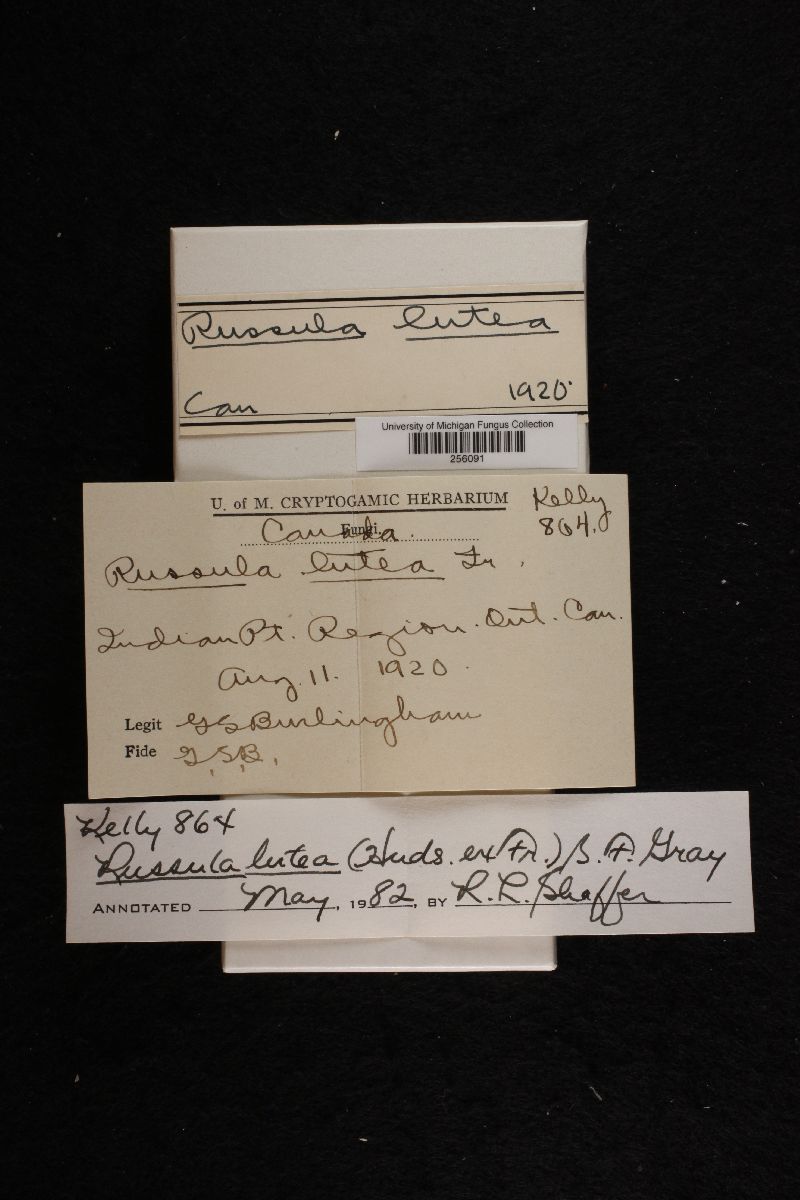 Russula lutea
Can 1920
University of Michigan Fungus Collection
256091
U. of M. CRYPTOGAMIC HERBARIUM Kelly
Fungi. 864.
Canada.
Russula lutea Fr.
Indian Pt. Region. Ont. Can.
Aug. 11. 1920.
Legit GSBurlingham
Fide G.S.B.
Kelly 864
Russula lutea (Huds. ex Fr.) S. F. Gray
ANNOTATED May, 1982, BY R. L. Shaffer